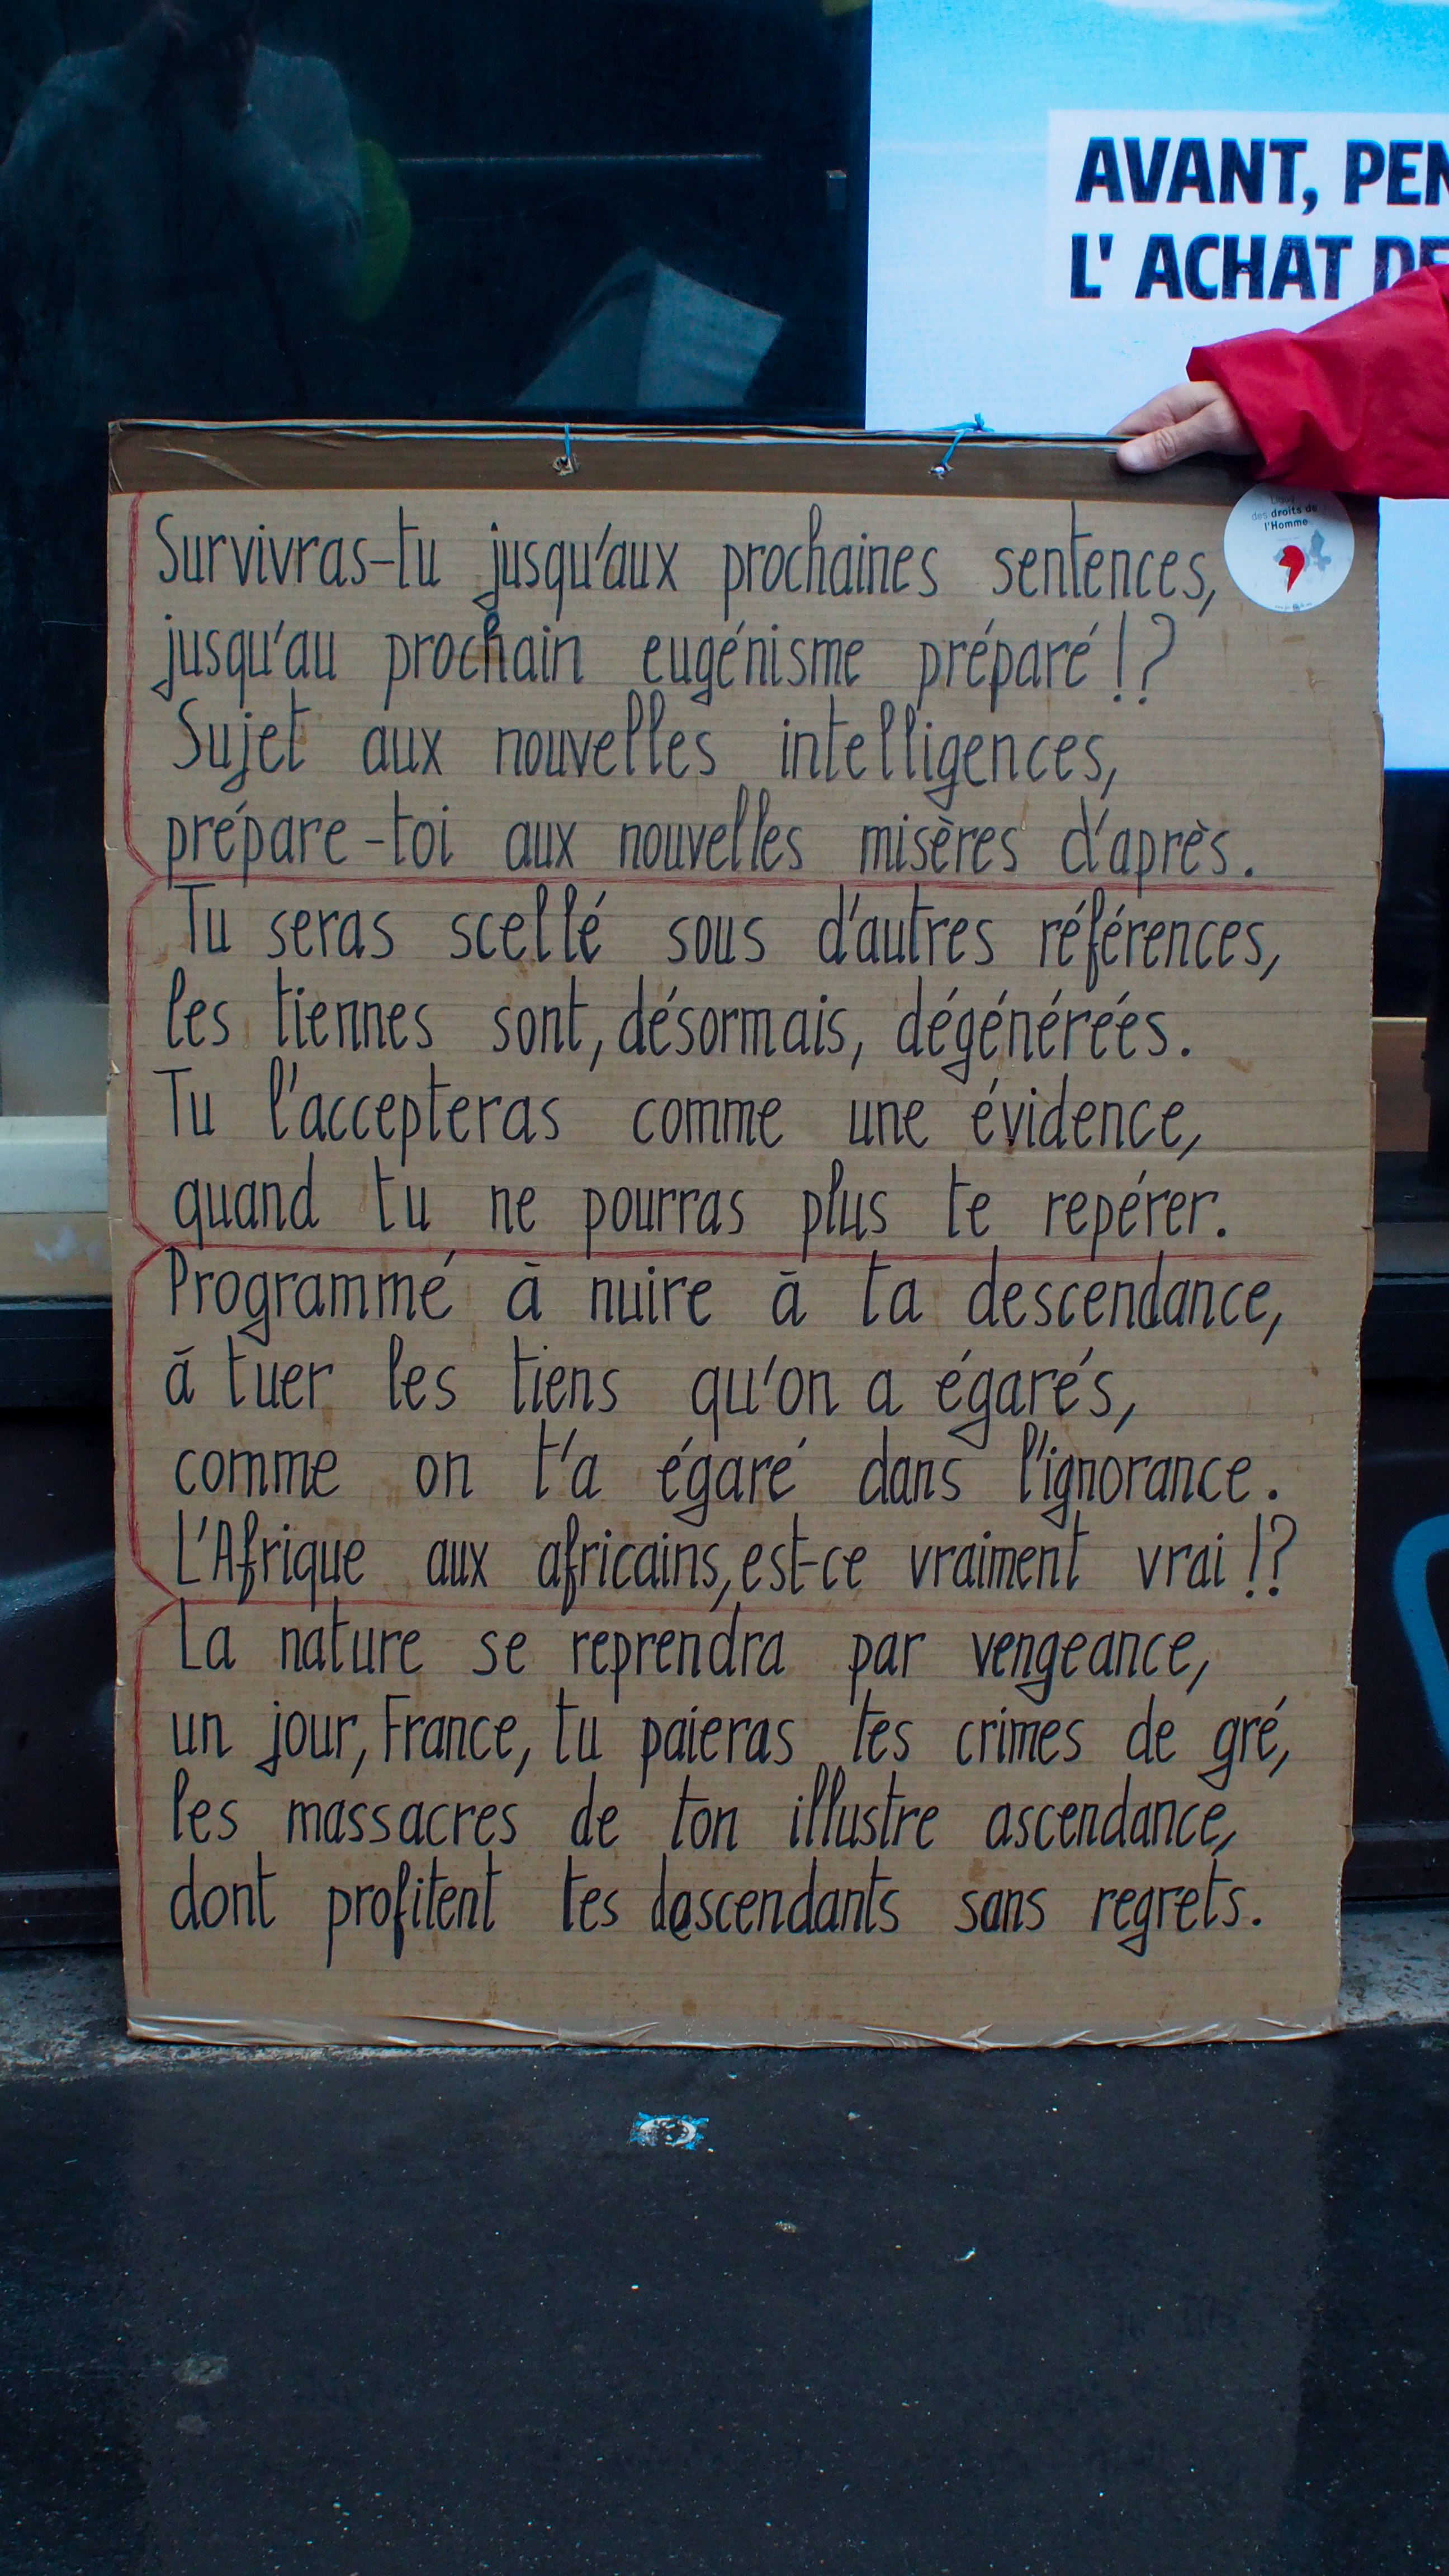 AVANT, PEN
L' ACHAT DE
des droits de
l'Homme
Survivras-tu jusqu'aux prochaines sentences,
jusqu'au prochain eugénisme préparé!?
Sujet aux nouvelles intelligences,
prépare-toi aux nouvelles misères d'après.
Tu seras scellé sous d'autres références,
les tiennes sont, désormais, dégénéréés.
Tu l'accepteras comme une évidence,
quand tu ne pourras plus te repérer.
Programmé à nuire à ta descendance,
à tuer les tiens qu'on a égarés,
comme on t'a égaré dans l'ignorance.
L'Afrique aux africains, est-ce vraiment vrai!?
La nature se reprendra par vengeance,
un jour, France, tu paieras tes crimes de gré,
les massacres de ton illustre ascendance,
dont profitent tes descendants sans regrets.